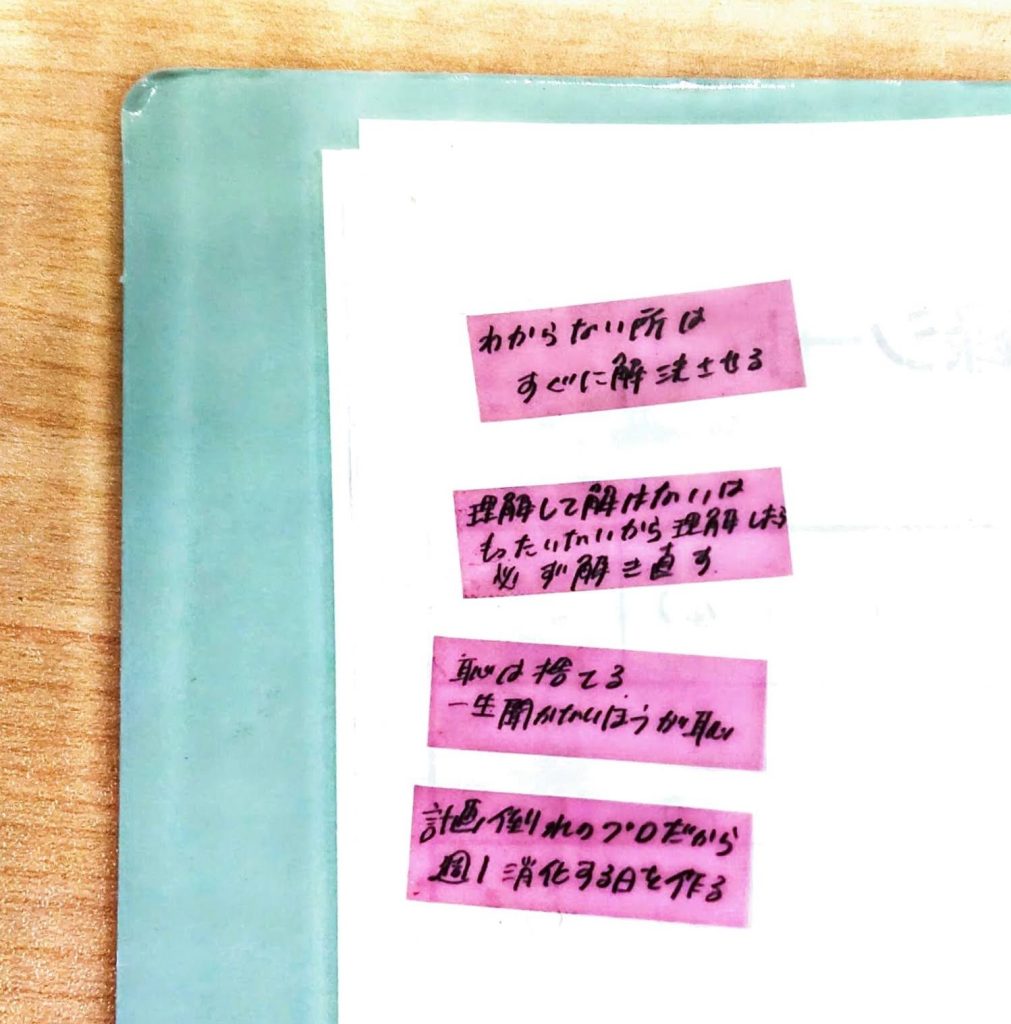 わからない所は
すぐに解決させる
理解して解けないは
もったいないから理解したら
必ず解き直す
恥は捨てる
一生聞かないほうが恥
計画倒れのプロだから
週1消化する日を作る